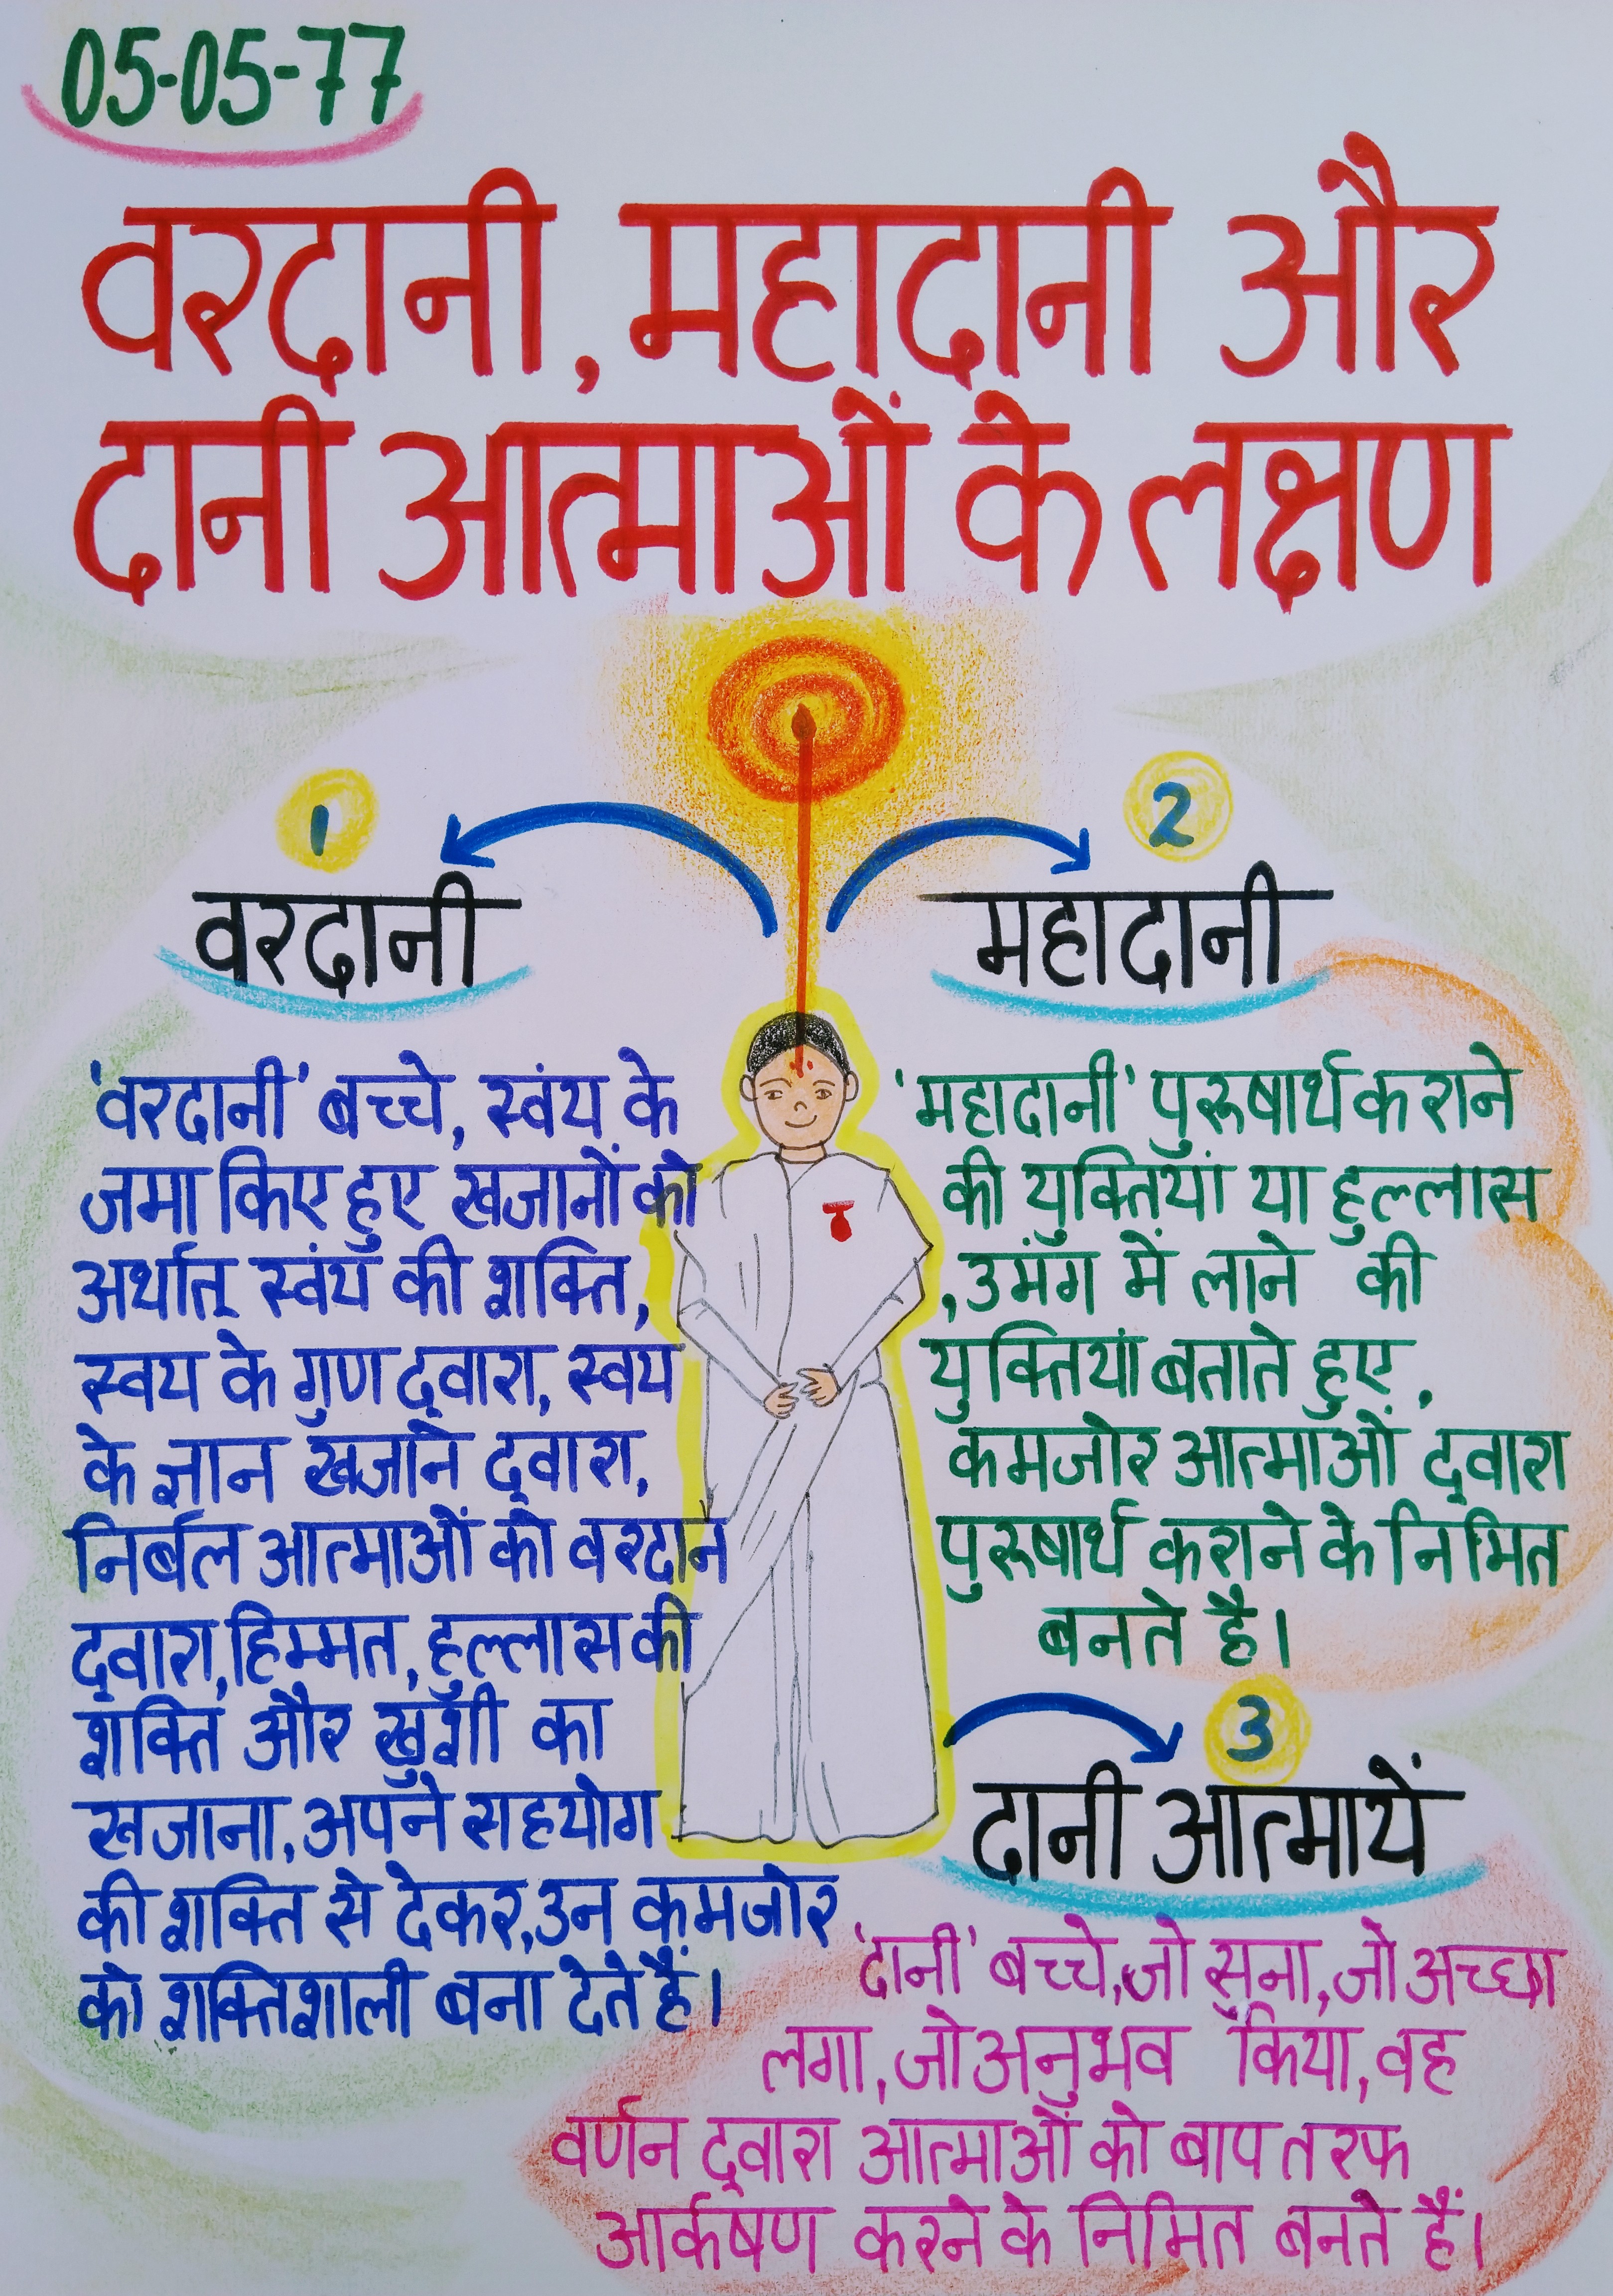 05-05-77
वरदानी, महादानी और
दानी आत्माओं के लक्षण
1
वरदानी
'वरदानी' बच्चे, स्वंय के
जमा किए हुए खजानों को
अर्थात् स्वंय की शक्ति,
स्वय के गुण द्वारा, स्वय
के ज्ञान खजाने द्वारा,
निर्बल आत्माओं को वरदान
द्वारा, हिम्मत, हुल्लास की
शक्ति और खुशी का
खजाना, अपने सहयोग
की शक्ति से देकर, उन कमजोर
को शक्तिशाली बना देते हैं।
2
महादानी
'महादानी' पुरूषार्थ कराने
की युक्तियां या हुल्लास
,उमंग में लाने की
युक्तियां बताते हुए,
कमजोर आत्माओं द्वारा
पुरूषार्थ कराने के निमित
बनते है।
3
दानी आत्मायें
'दानी' बच्चे, जो सुना, जो अच्छा
लगा, जो अनुभव किया, वह
वर्णन द्वारा आत्माओं को बाप तरफ
आर्कषण करने के निमित बनते हैं।